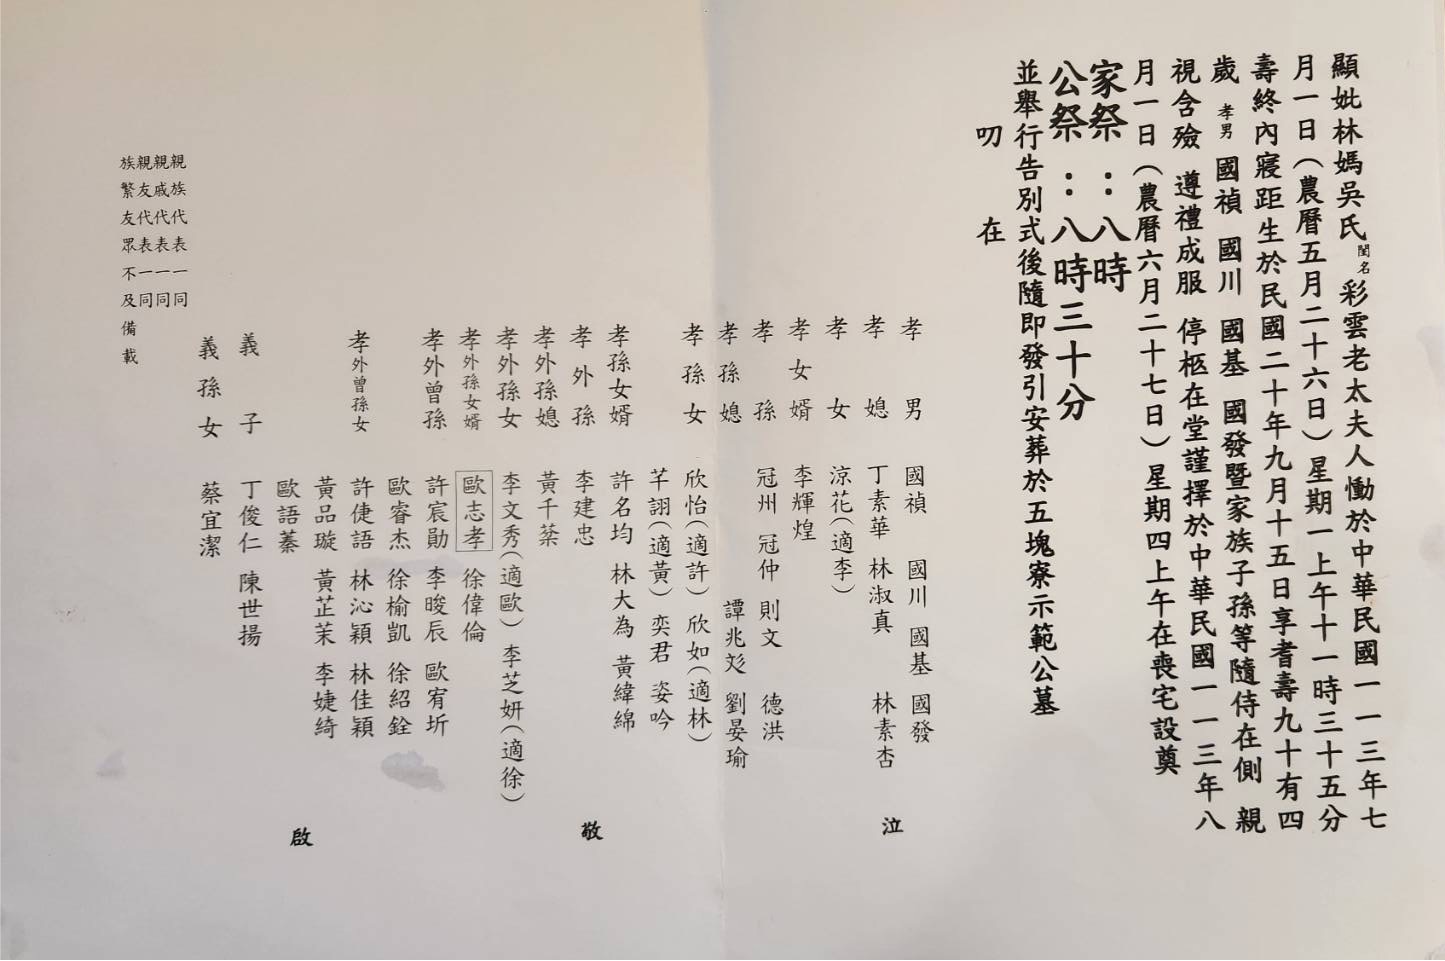 顯妣林媽吳氏閨名彩雲老太夫人慟於中華民國一一三年七
月一日（農曆五月二十六日）星期一上午十一時三十五分
壽終內寢距生於民國二十年九月十五日享耆壽九十有四
歲 孝男 國禎 國川 國基 國發暨家族子孫等隨侍在側 親
視含殮 遵禮成服 停柩在堂謹擇於中華民國一一三年八
月一日（農曆六月二十七日）星期四上午在喪宅設奠
家祭：八時
公祭：八時三十分
並舉行告別式後隨即發引安葬於五塊寮示範公墓
叨 在
孝男 國禎 國川 國基 國發 泣
孝媳 丁素華 林淑真 林素杏
孝女 涼花（適李）
孝女婿 李輝煌
孝孫 冠州 冠仲 則文 德洪
孝孫媳 譚兆彣 劉晏瑜
孝孫女 欣怡（適許） 欣如（適林）
芊翃（適黃） 奕君 姿吟
孝孫女婿 許名均 林大為 黃緯綿
孝外孫 李建忠 敬
孝外孫媳 黃千棻
孝外孫女 李文秀（適歐） 李芝妍（適徐）
孝外孫女婿 歐志孝 徐偉倫
孝外曾孫 許宸勛 李晙辰 歐宥圻
歐睿杰 徐榆凱 徐紹銓
孝外曾孫女 許倢語 林沁穎 林佳穎
黃品璇 黃芷茉 李婕綺
歐語蓁 啟
義子 丁俊仁 陳世揚
義孫女 蔡宜潔
親族代表一同
親戚代表一同
親友代表一同
族繁友眾不及備載